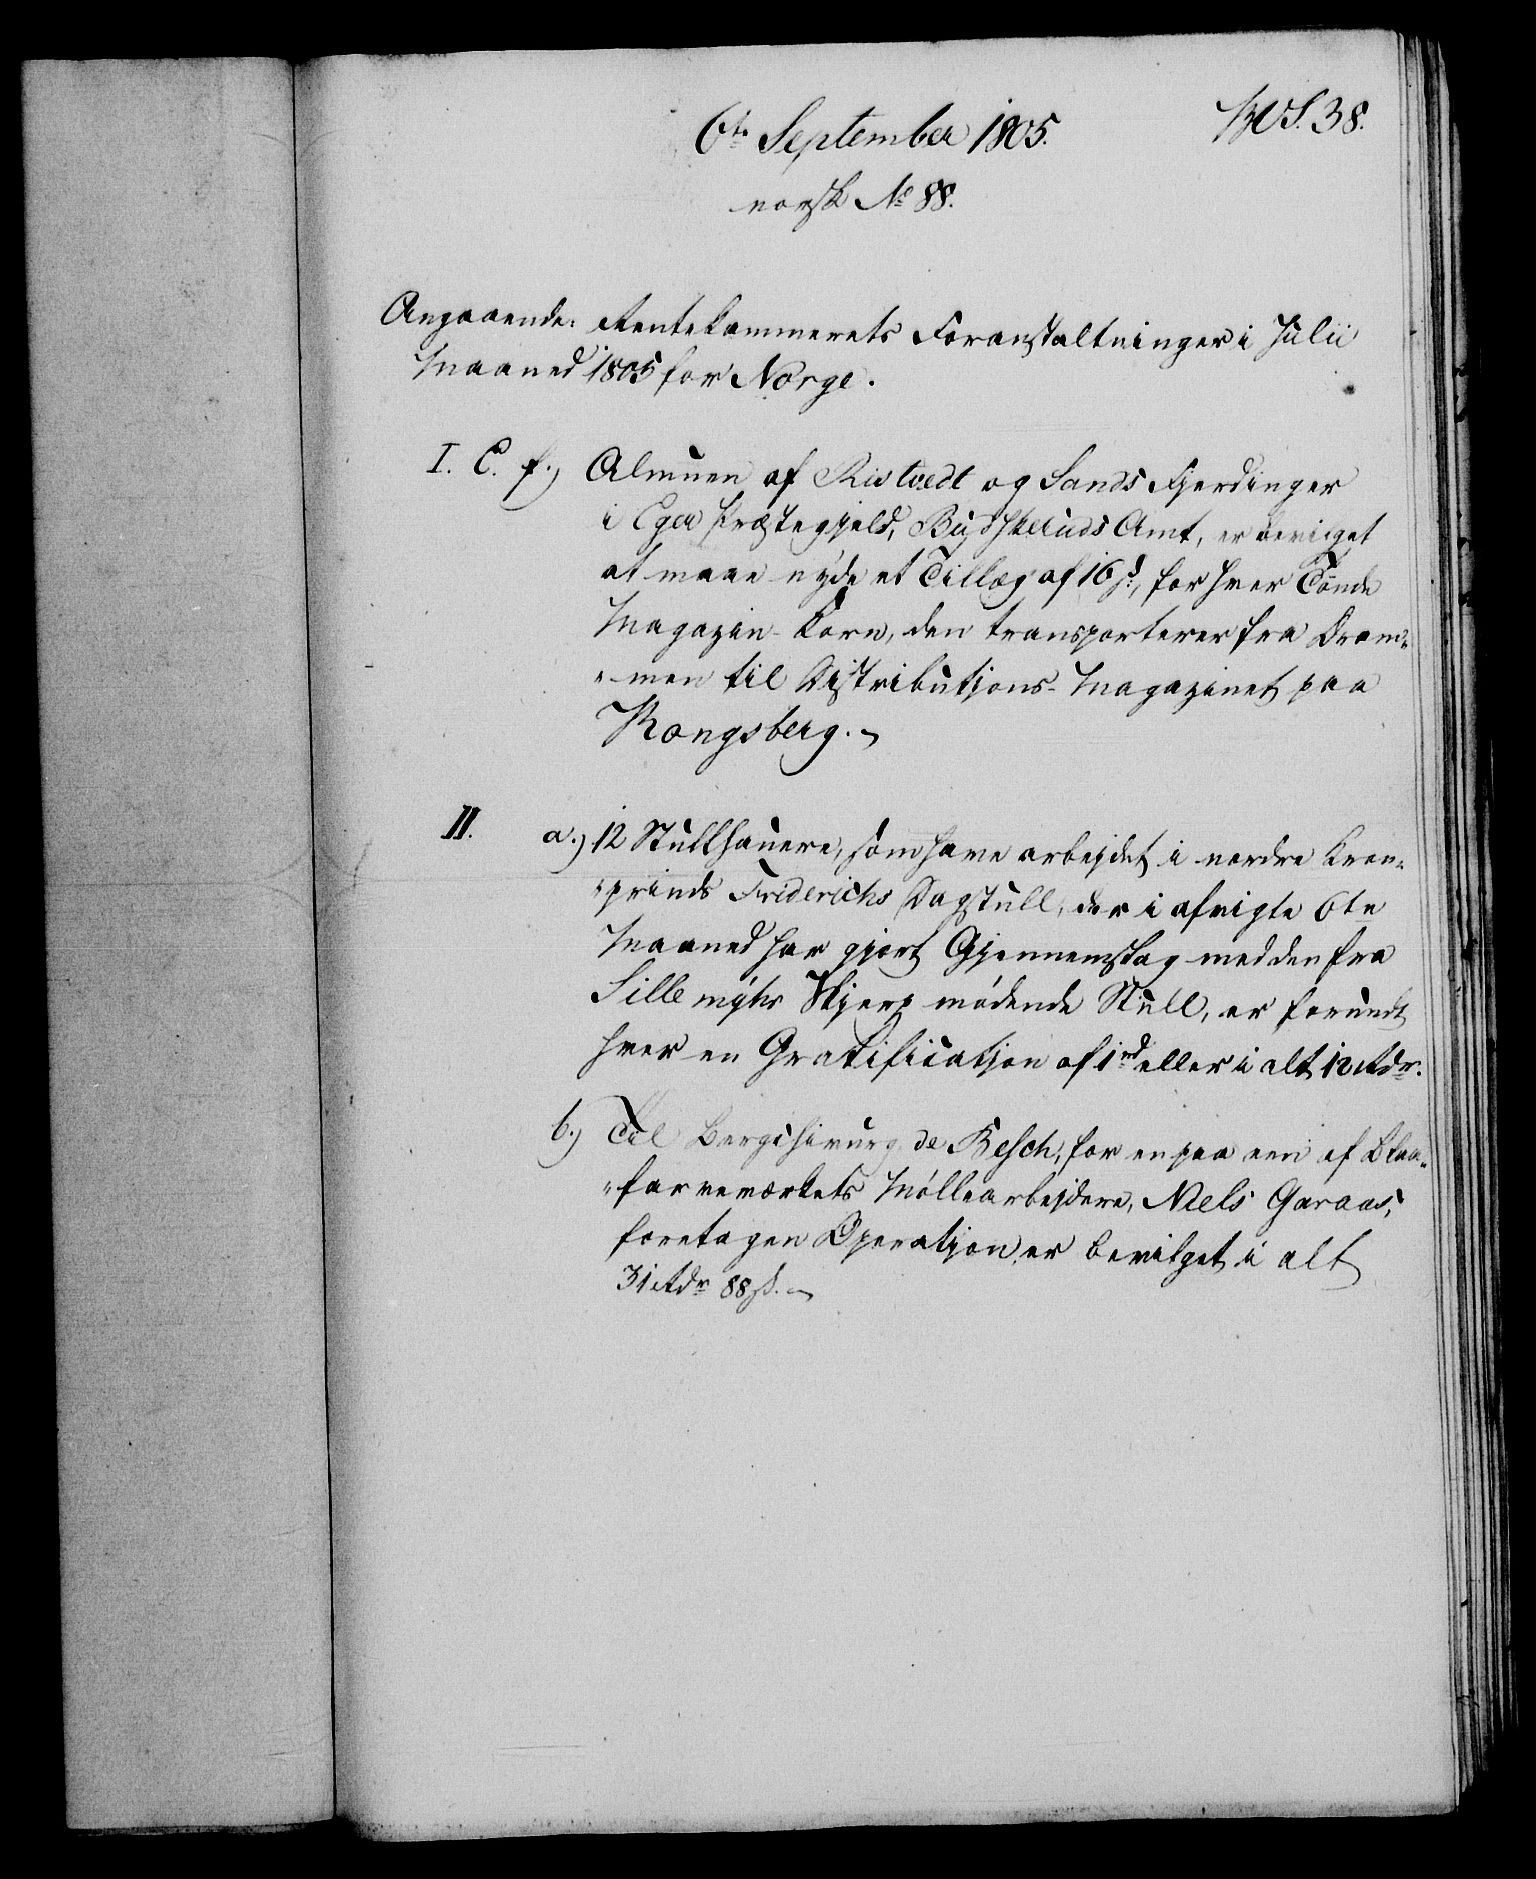 6te September 1805.
S. 38.
norsk No 88.
Angaaende: Rentekammerets Foranstaltninger i Julii
Maaned 1805 for Norge.
I. C. f.) Almuen af Ristvedt og Sands Fjerdinger
i Eger Præstegjeld, Budskeruds Amt, er bevilget
at maae nyde et Tillæg af 16 s., for hver Tönde
Magazin-Korn, den transporterer fra Dram„
„men til Distributjons-Magazinet paa
Kongsberg.
II. a.) 12 Stullhauere, som have arbejdet i nordre Kron„
„prinds Friderichs Dagstull, der i afvigte 6te
Maaned har gjort Gjennemslag med den fra
Sillemyhr Skjerp mødende Stull, er forundt
hver en Gratificatjon af 1 rd eller i alt 12 Rdr.
b.) Til Bergchirurg de Besch, for en paa een af Blaa„
„farveværkets Møllearbejdere, Niels Garaas,
foretagen Operatjon, er bevilget i alt
31 Rdr 88 s.